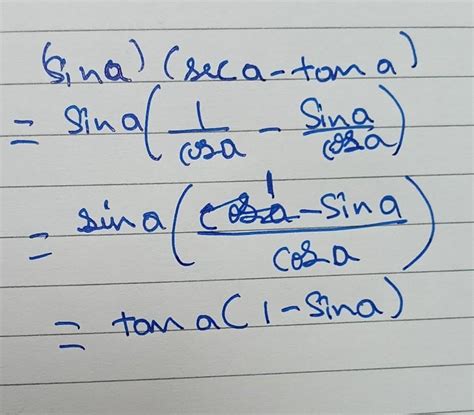 (sina) (sec a - tan a)
= sina(1/cosa - sina/cosa)
= sina(1 - sina/cosa)
= tana(1 - sina)